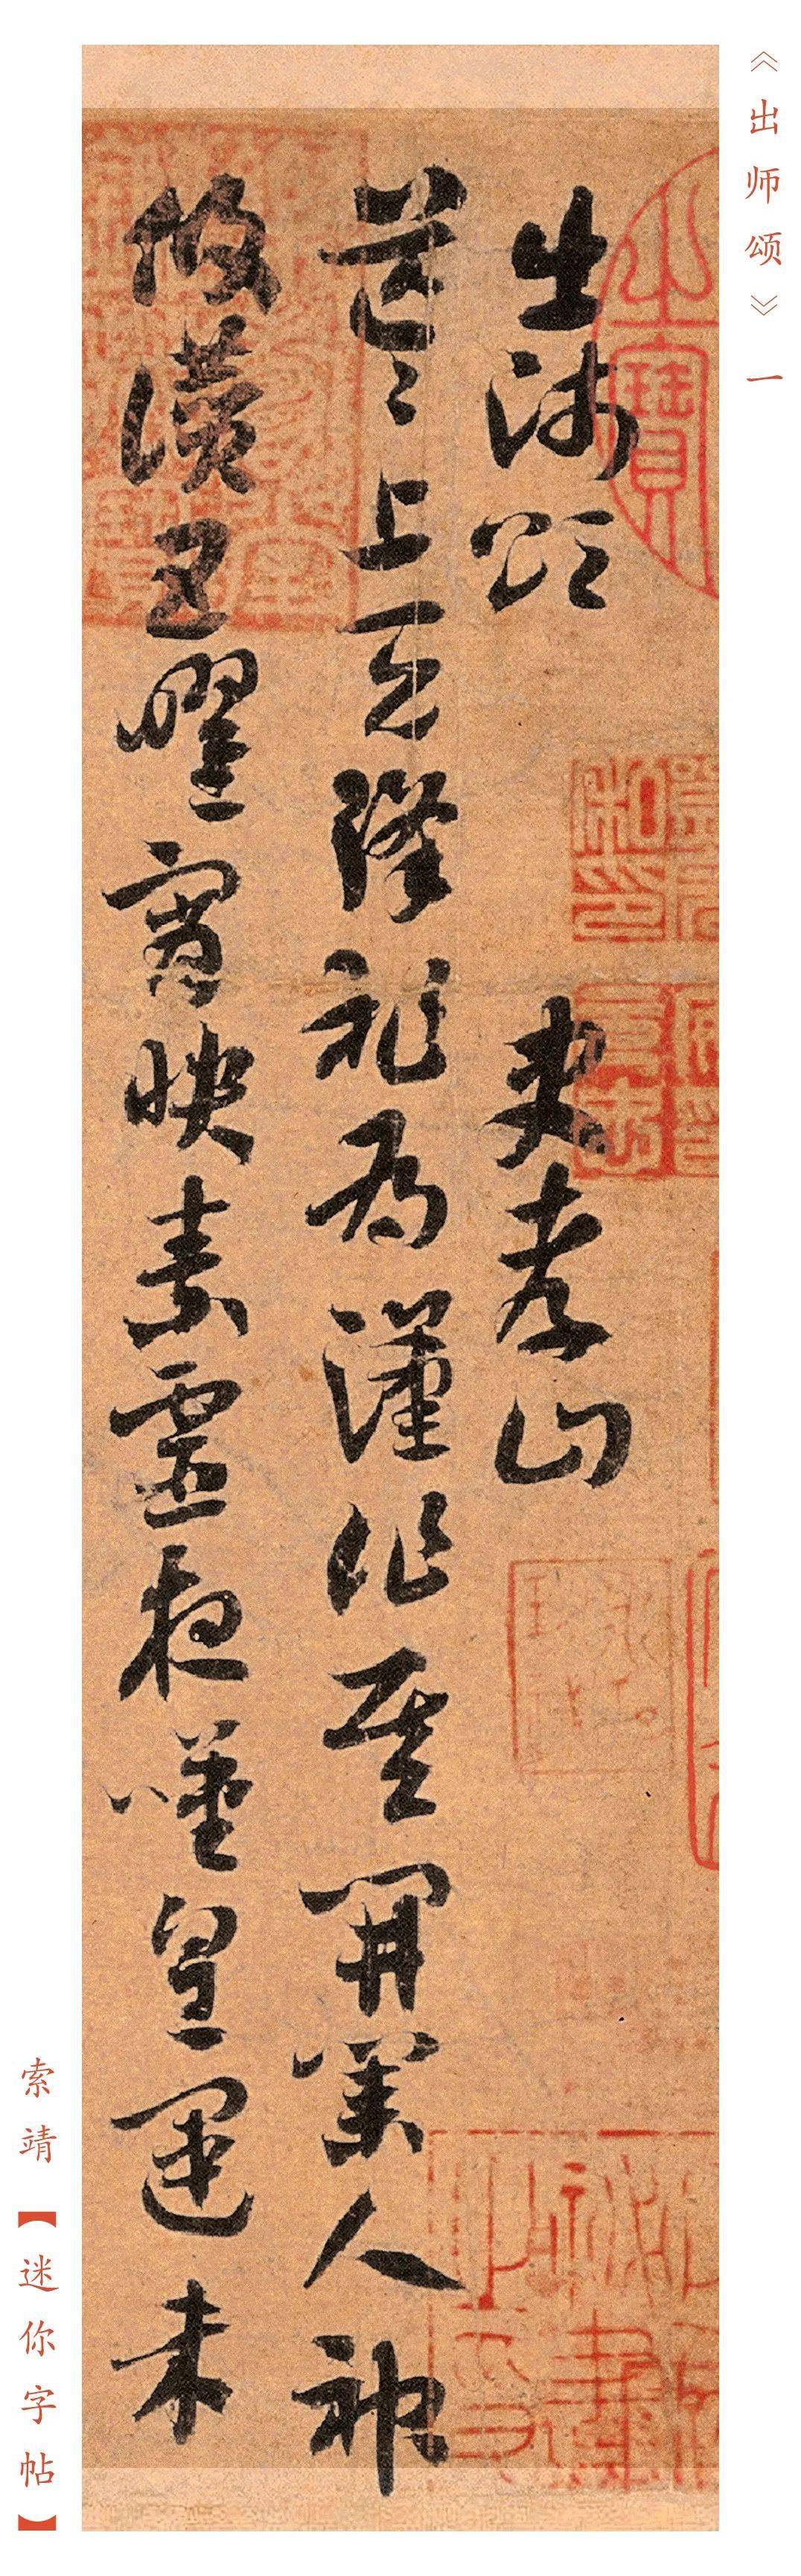 《出师颂》一
出師頌 史孝山
茫〻上天降祚為漢作基開業人神
攸讚五曜宵映素靈夜嘆皇運未
索靖【迷你字帖】